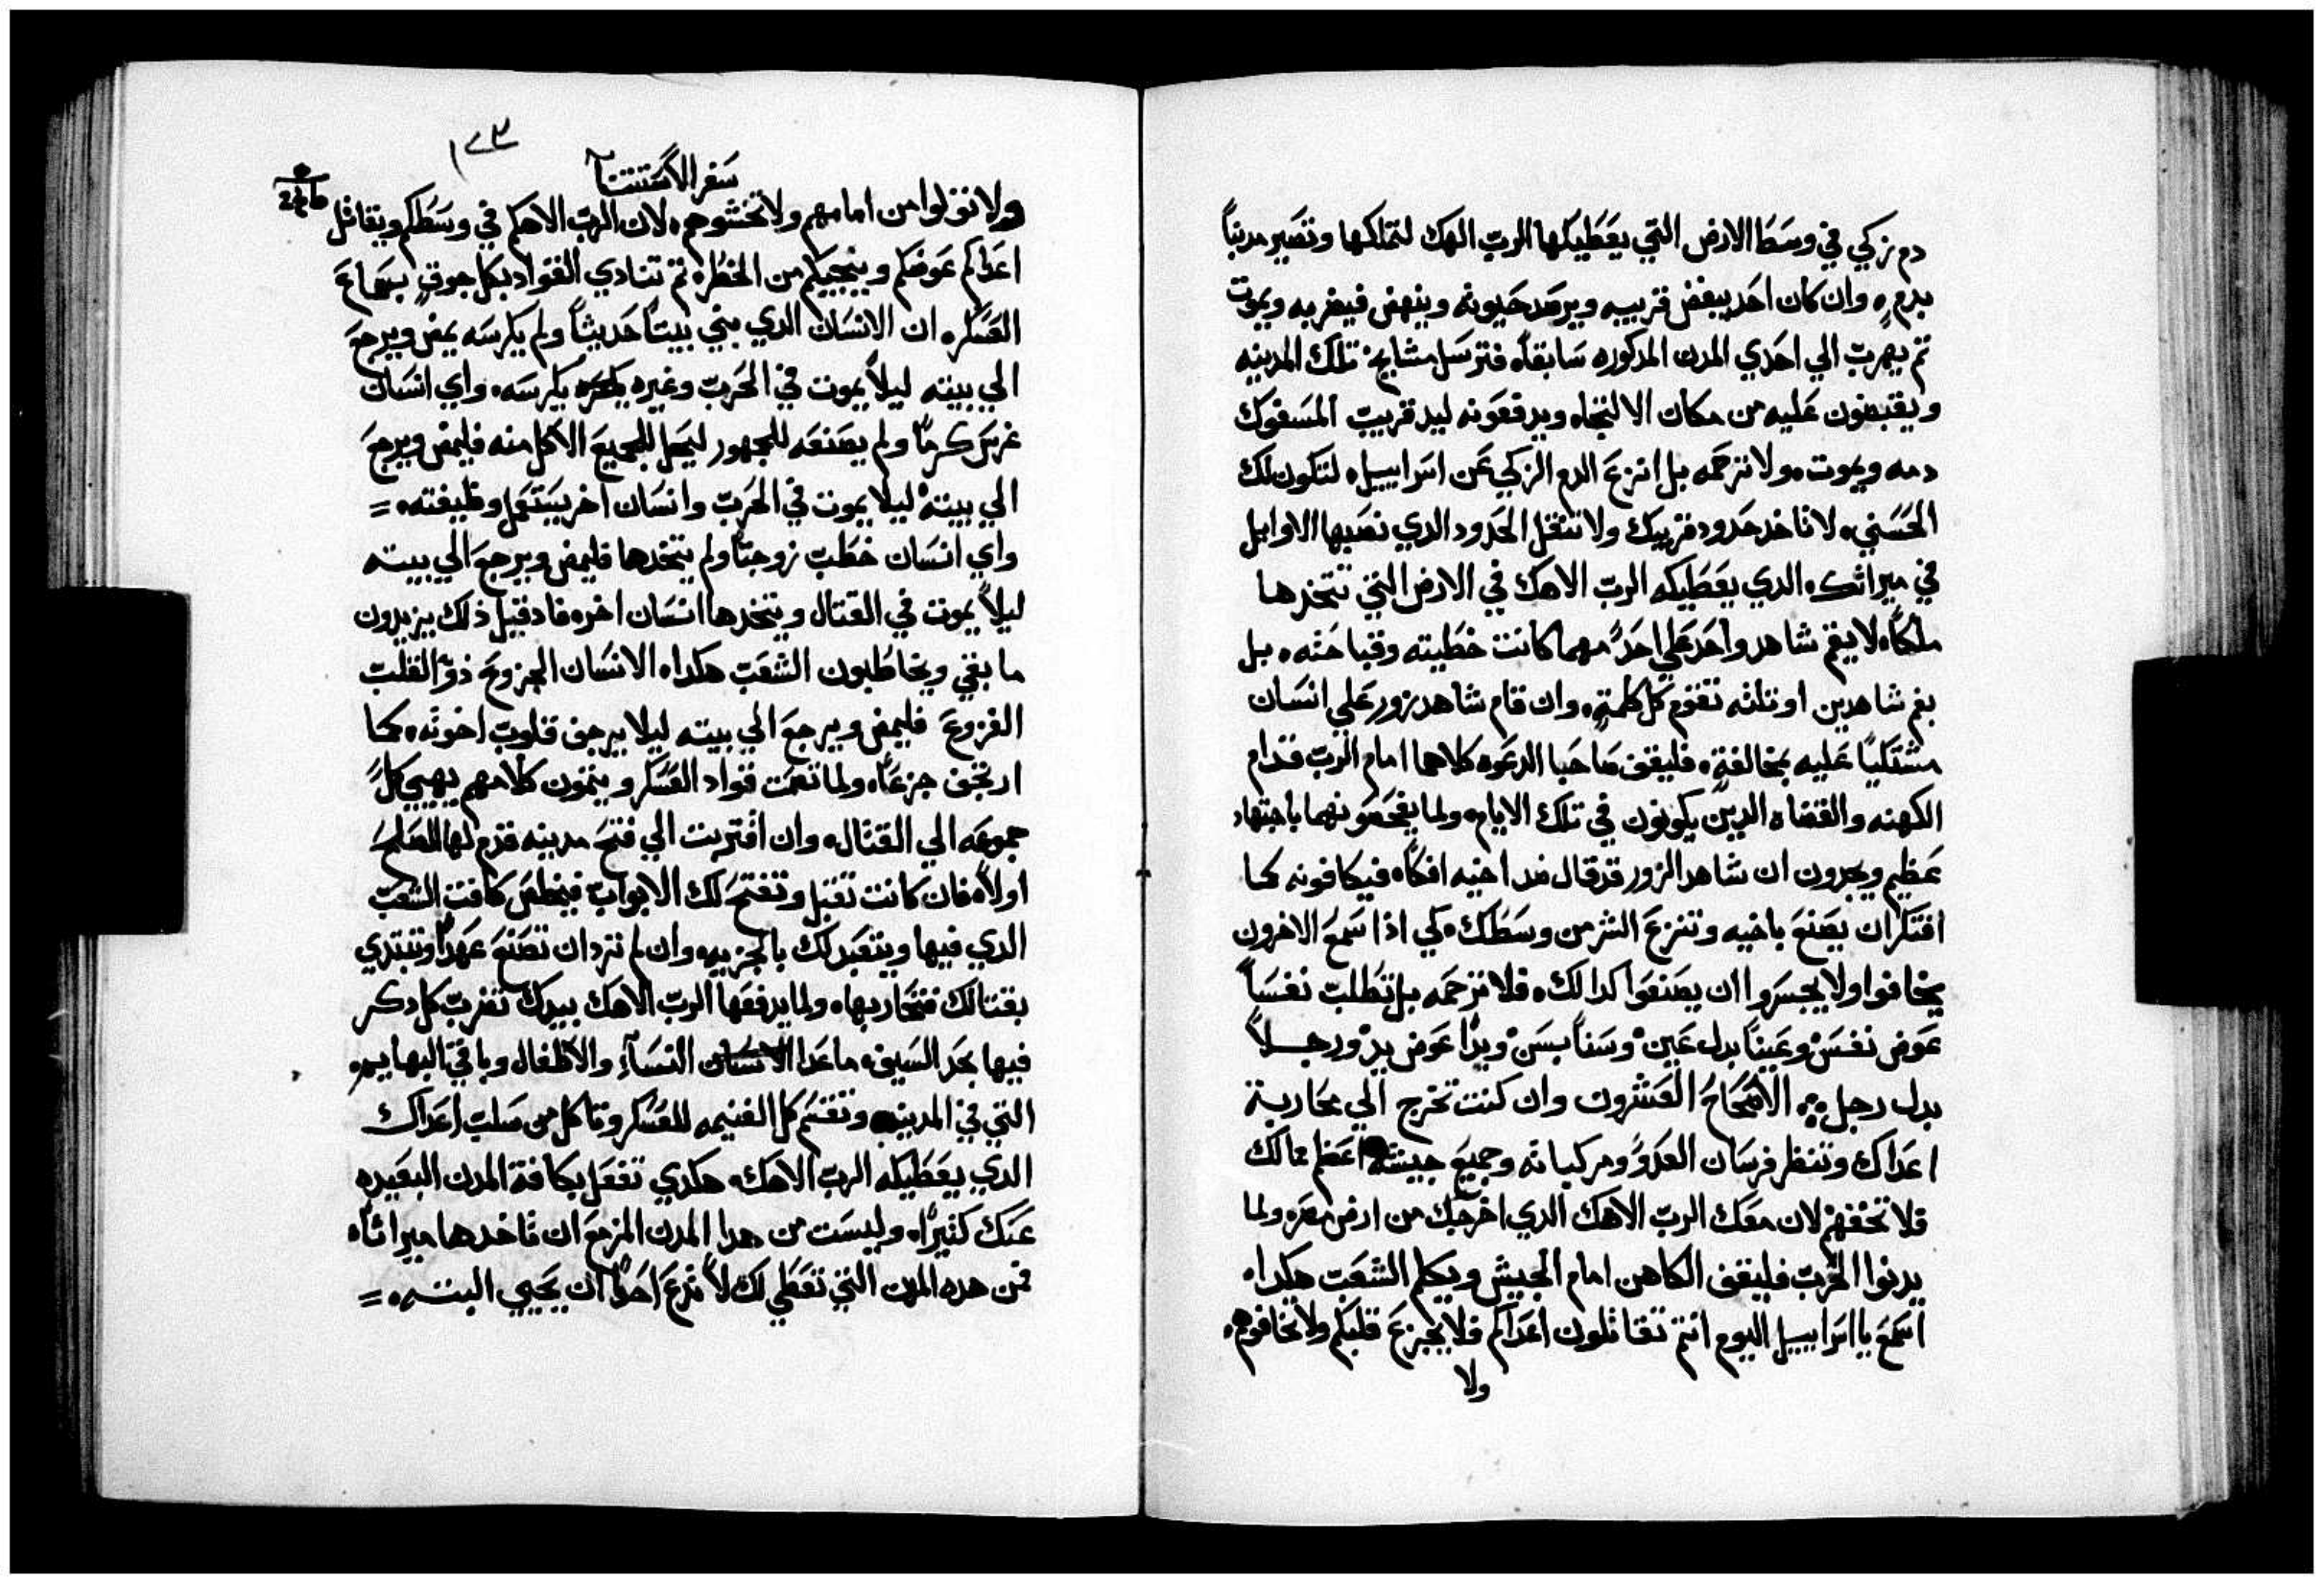 دم زكي في وسط الارض التي يعطيكها الرب الهك لتملكها وتصير مدنباً
بدم، وان كان احد يبغض قريبه ويرصد حيوته وينهض فيضربه ويموت
تم يهرب الي احدي المدن المدكوره سابقاً، فترسل مشايخ تلك المدينه
ويقبضون عليه من مكان الالتجاه ويدفعونه ليد قريب المسفوك
دمه ويموت، ولا ترحمه بل انزع الدم الزكي عن اسراييل، لتكون لك
الحسني، لا تاخد حدود قريبك ولا تنقل الحدود الدي نصبها الاوايل
في ميراثك، الدي يعطيكه الرب الاهك في الارض التي تتخدها
ملكاً، لا يقم شاهد واحد علي احدٍ مهما كانت خطيته وقباحته، بل
بفم شاهدين او تلثه تقوم كل كلمةٍ، وان قام شاهد زور علي انسان
مشتكيًا عليه بمخالفةٍ، فليقف صاحبا الدعوه كلاهما امام الرب قدام
الكهنه والقضاه الدين يكونون في تلك الايام، ولما يفحصونهما باجتهاد
عظيم ويجدون ان شاهد الزور قد قال ضد اخيه افكاً، فيكافونه كما
افتكر ان يصنع باخيه وتنزع الشر من وسطك، كي اذا سمع الاخرون
يخافوا ولا يجسروا ان يصنعوا كدالك، فلا ترحمه بل تطلب نفساً
عوض نفس وعيناً بدل عين وسناً بسن ويدًا عوض يد ورجلاً
بدل رجل ؞ الاصحاح العشرون وان كنت تخرج الي محاربة
اعداك وتنظر فرسان العدو ومركباته وجميع جيشه اعظم مالك
فلا تخفهم لان معك الرب الاهك الدي اخرجك من ارض مصر، ولما
يدنوا الحرب فليقف الكاهن امام الجيش ويكلم الشعب هكدا،
اسمع يا اسراييل اليوم انتم تقاتلون اعداكم فلا يجزع قلبكم ولا تخافوهم،
ولا
١٧٢
سفر الاستتنا
ولا تولوا من امامهم ولا تخشوهم، لان الرب الاهكم في وسطكم ويقاتل
اعداكم عوضكم وينجيكم من الخطر، تم تنادي القواد بكل جوقٍ بسماع
العسكر، ان الانسان الدي بني بيتاً حديثاً ولم يكرسه يمض ويرجع
الي بيته ليلاً يموت في الحرب وغيره يكرسه، واي انسان
غرس كرمًا ولم يصنعه للجمهور ليحل للجميع الاكل منه فليمض ويرجع
الي بيته ليلا يموت في الحرب وانسان اخر يستعمل وظيفته، =
واي انسان خطب زوجتاً ولم يتخدها فليمض ويرجع الي بيته
ليلاً يموت في القتال ويتخدها انسان اخر، فاد قيل ذلك يزيدون
ما بقي ويخاطبون الشعب هكدا، الانسان الجزوع ذو القلب
الفزوع فليمض ويرجع الي بيته ليلا يرجف قلوب اخوته، كما
ارتجف جزعاً، ولما تصمت قواد العسكر ويتمون كلامهم يهيي كلً
جموعه الي القتال، وان اقتربت الي فتح مدينه قدم لها الصلح
اولاً، فان كانت تقبل وتفتح لك الابواب فيخلص كافت الشعب
الدي فيها ويتعبد لك بالجزيه، وان لم ترد ان تصنع عهدًا وتبتدي
بقتالك فتحاربها، ولما يدفعها الرب الاهك بيدك تضرب كل دكر
فيها بحد السيف، ما عدا النسآء والاطفال وباقي البهايم،
التي في المدينه وتقسم كل الغنيمه للعسكر وتاكل من سلب اعداك
الدي يعطيكه الرب الاهك، هكدي تفعل بكافة المدن البعيده
عنك كثيرًا، وليست من هدا المدن المزمع ان تاخدها ميراثاً،
فمن هده المدن التي تعطي لك لا تدع احدًا ان يحيي البته، =